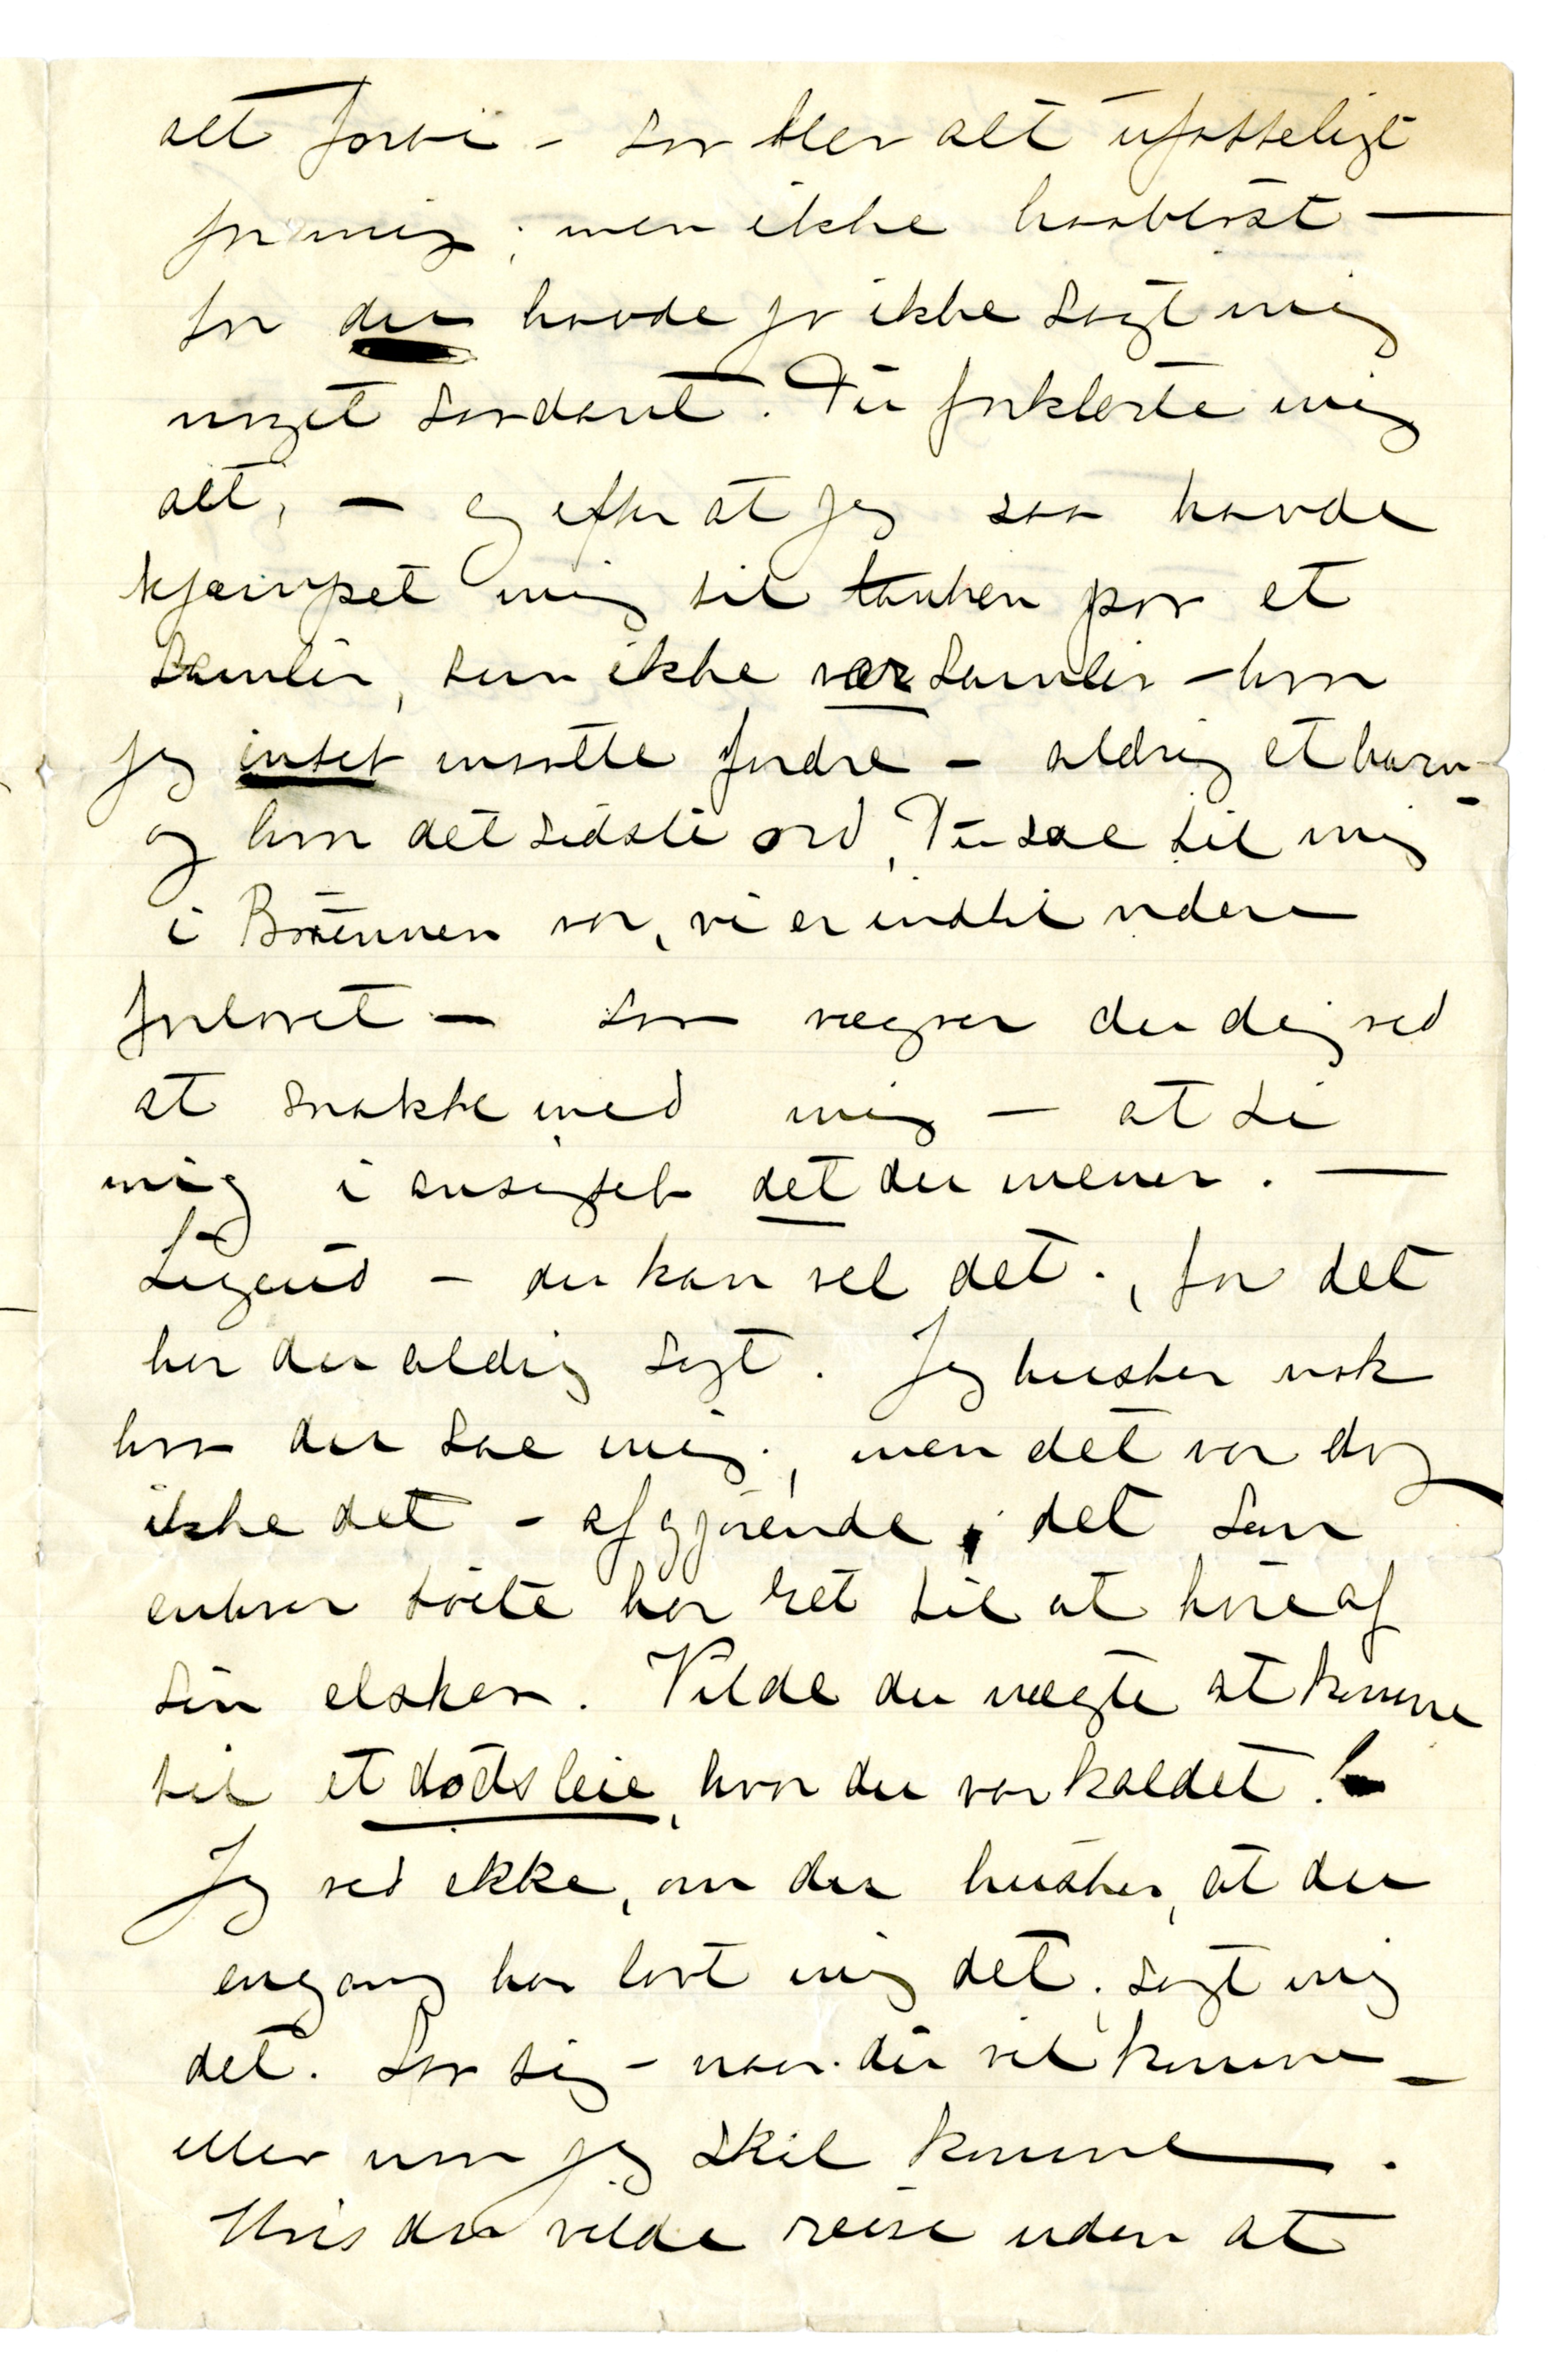 alt forbi – saa blev alt ufatteligt
for mig; men ikke haabløst —
for du havde jo ikke sagt mig
noget saadant. Du forklarte mig
alt, — og efter at jeg saa havde
kjæmpet mig til tanken paa et
samliv, som ikke var samliv – hvor
jeg intet maatte fordre – aldrig et barn –
og hvor det sidste ord, Du sae til mig
i var, vi er indtil videre
forlovet — saa vægrer du dig ved
at snakke med mig — at si
mig i ansigtet det du mener. —
– du kan vel det., for det
har du aldrig sagt. Jeg husker nok
hva du sae mig; men det var dog
ikke det – afgjørende, det som
enhver har ret til at høre af
sin elsker. Vilde du nægte at komme
til et dødsleie, hvor du var kaldet!
Jeg ved ikke, om du husker, at du
engang har lovt mig det. sagt mig
det. Saa sig – naar du vil komme –
eller naar jeg skal komme — .
Hvis du vilde reise uden at